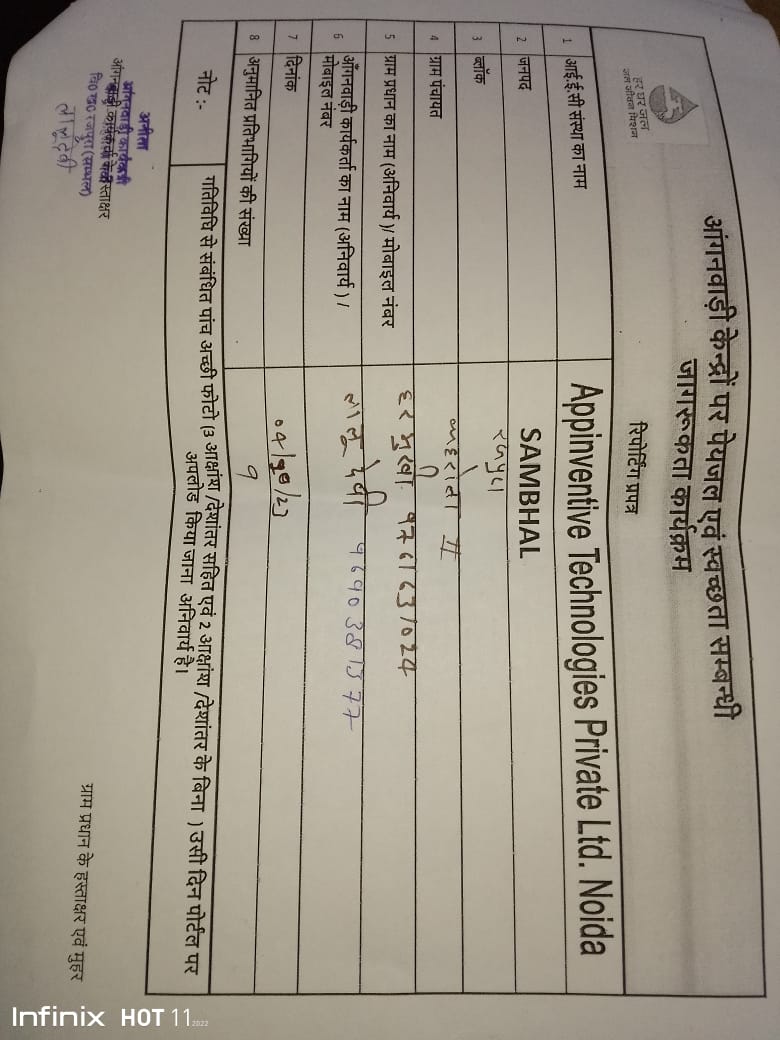 हर घर जल
जल जीवन मिशन
आंगनवाड़ी केन्द्रों पर पेयजल एवं स्वच्छता सम्बन्धी
जागरूकता कार्यक्रम
रिपोर्टिंग प्रपत्र
1 आई.ई.सी संस्था का नाम Appinventive Technologies Private Ltd. Noida
2 जनपद SAMBHAL
3 ब्लॉक रजपुरा
4 ग्राम पंचायत II
5 ग्राम प्रधान का नाम (अनिवार्य)/ मोबाइल नंबर
6 आँगनवाड़ी कार्यकर्ता का नाम (अनिवार्य ) / लालू देवी
मोबाइल नंबर
7 दिनांक
8 अनुमानित प्रतिभागियों की संख्या
नोट :- गतिविधि से संबंधित पांच अच्छी फोटो (3 आक्षांश /देशांतर सहित एवं 2 आक्षांश /देशांतर के बिना ) उसी दिन पोर्टल पर
अपलोड किया जाना अनिवार्य है।
आंगनवाड़ी कार्यकर्त्री
वि0 ख0 रजपुरा (सम्भल)
लालू देवी
ग्राम प्रधान के हस्ताक्षर एवं मुहर
Infinix HOT 11 2022